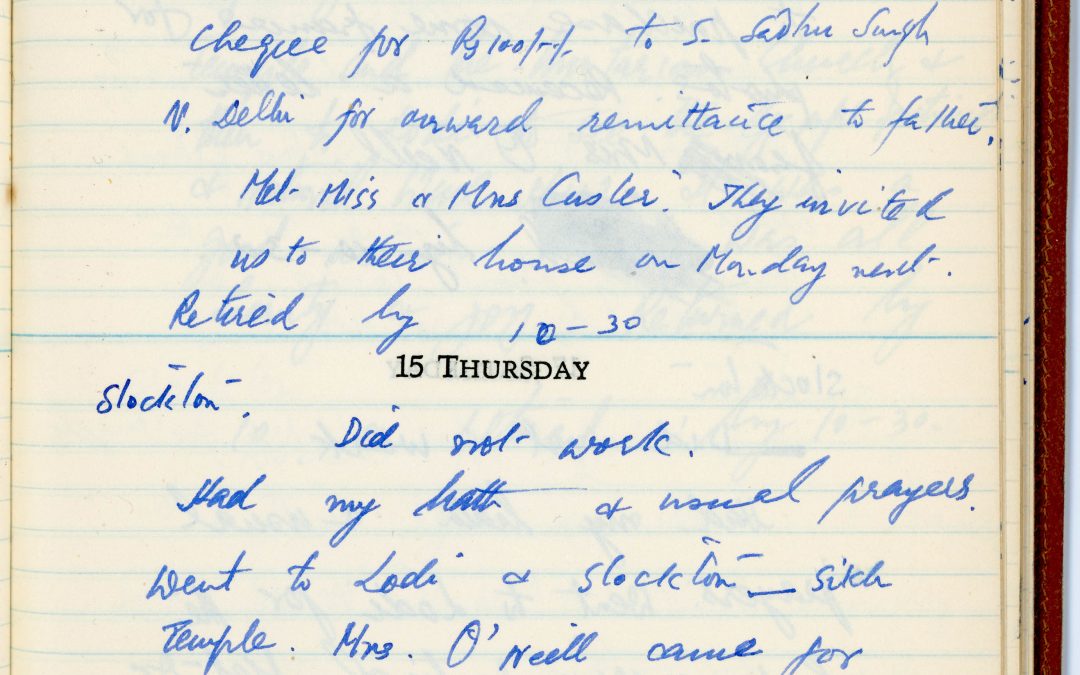 Cheque for Rs 100/-/- to S. Sadhu Singh
N. Delhi for onward remittance to father.
Met Miss & Mrs Custer. They invited
us to their house on Monday next.
Retired by 10-30
15 THURSDAY
Stockton.
Did not work.
Had my bath & usual prayers.
Went to Lodi & Stockton — Sikh
Temple. Mrs. O'Neill came for